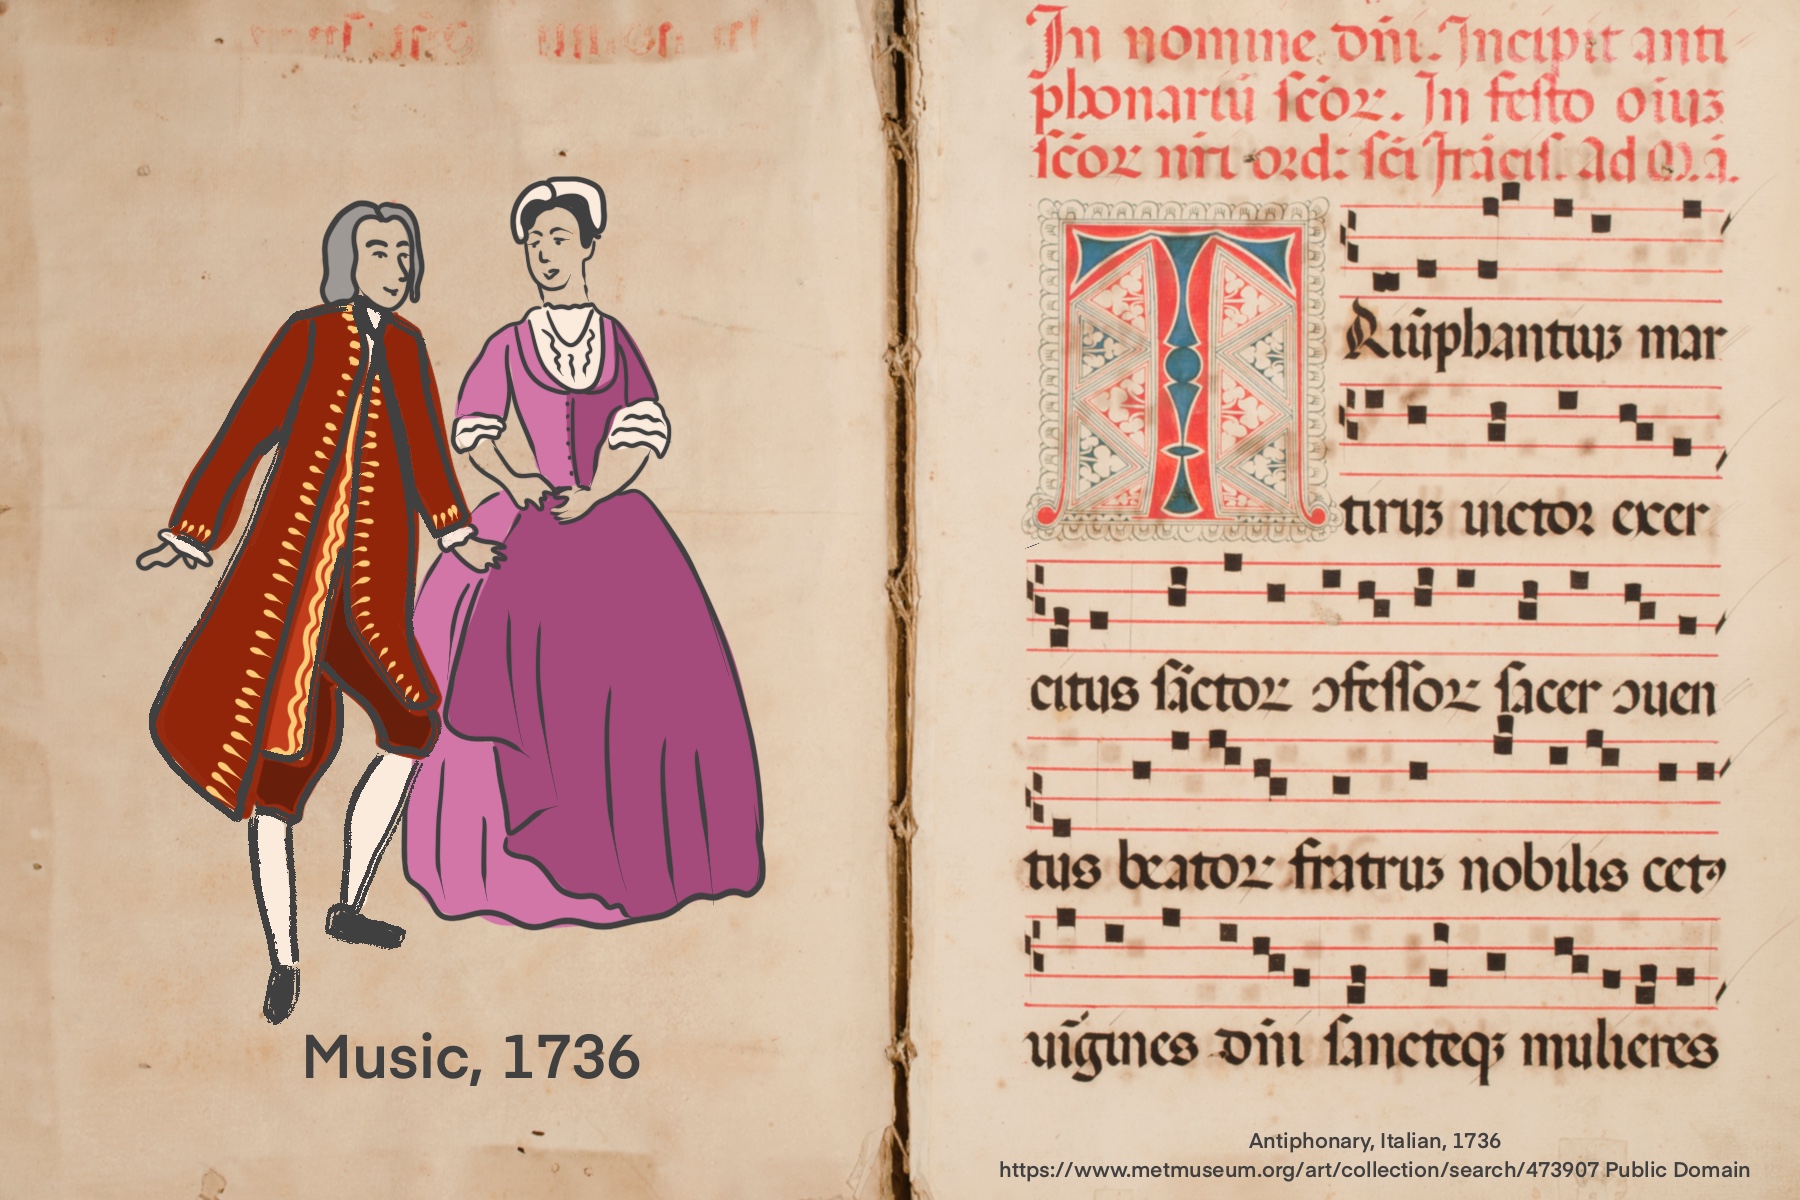 Music, 1736
In nomine dñi. Incipit anti
phonariū scōr. In festo oiuʒ
scōr nr̄i ord: sc̄i frācis. Ad
T
triuʒ uictor exer
citus sāctor ɔfessor sacer ɔuen
tus beator fratruʒ nobilis cet⁹
uīgines dn̄i sancteqʒ mulieres
Antiphonary, Italian, 1736
https://www.metmuseum.org/art/collection/search/473907 Public Domain